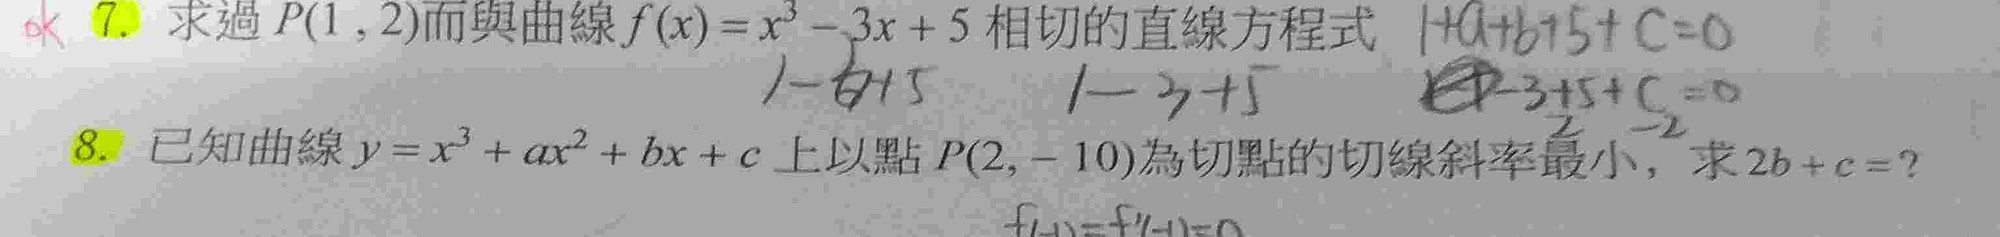 ok 7. 求過 P(1 , 2)而與曲線 f(x) = x³ − 3x + 5 相切的直線方程式 1+a+b+5+C=0
1−6+5 1−3+5 −3+5+C=0
2 −2
8. 已知曲線 y = x³ + ax² + bx + c 上以點 P(2, − 10)為切點的切線斜率最小，求 2b + c = ?
f(-1)=f'(-1)=0